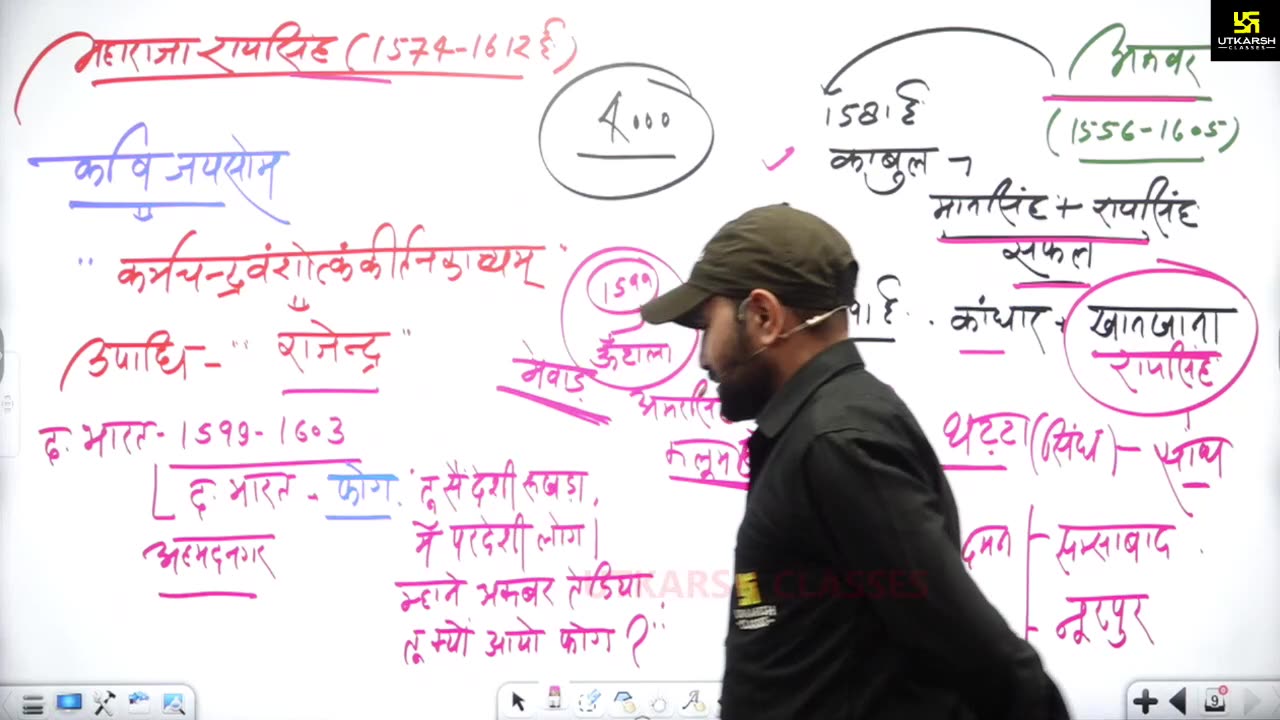 महाराजा रायसिंह (1574-1612 ई)
कवि जयसोम
"कर्मचन्द्रवंशोत्कंकीर्तनकाव्यम्"
उपाधि - "राजेन्द्र"
द. भारत - 1599-1603
द. भारत - फोग.
अहमदनगर
"तू सैं देशी रूखड़ा,
मैं परदेशी लोग।
म्हाने अकबर तेडिया,
तू क्यों आयो फोग?"
4000
1599
ऊँटाला
मेवाड़
अकबर
(1556-1605)
1581 ई
काबुल -
मानसिंह + रायसिंह
सफल
ई. कांधार -
खानखाना
रायसिंह
थट्टा (सिंध) -
दमन
समसाबाद
नूरपुर
UTKARSH CLASSES
UTKARSH
CLASSES
9